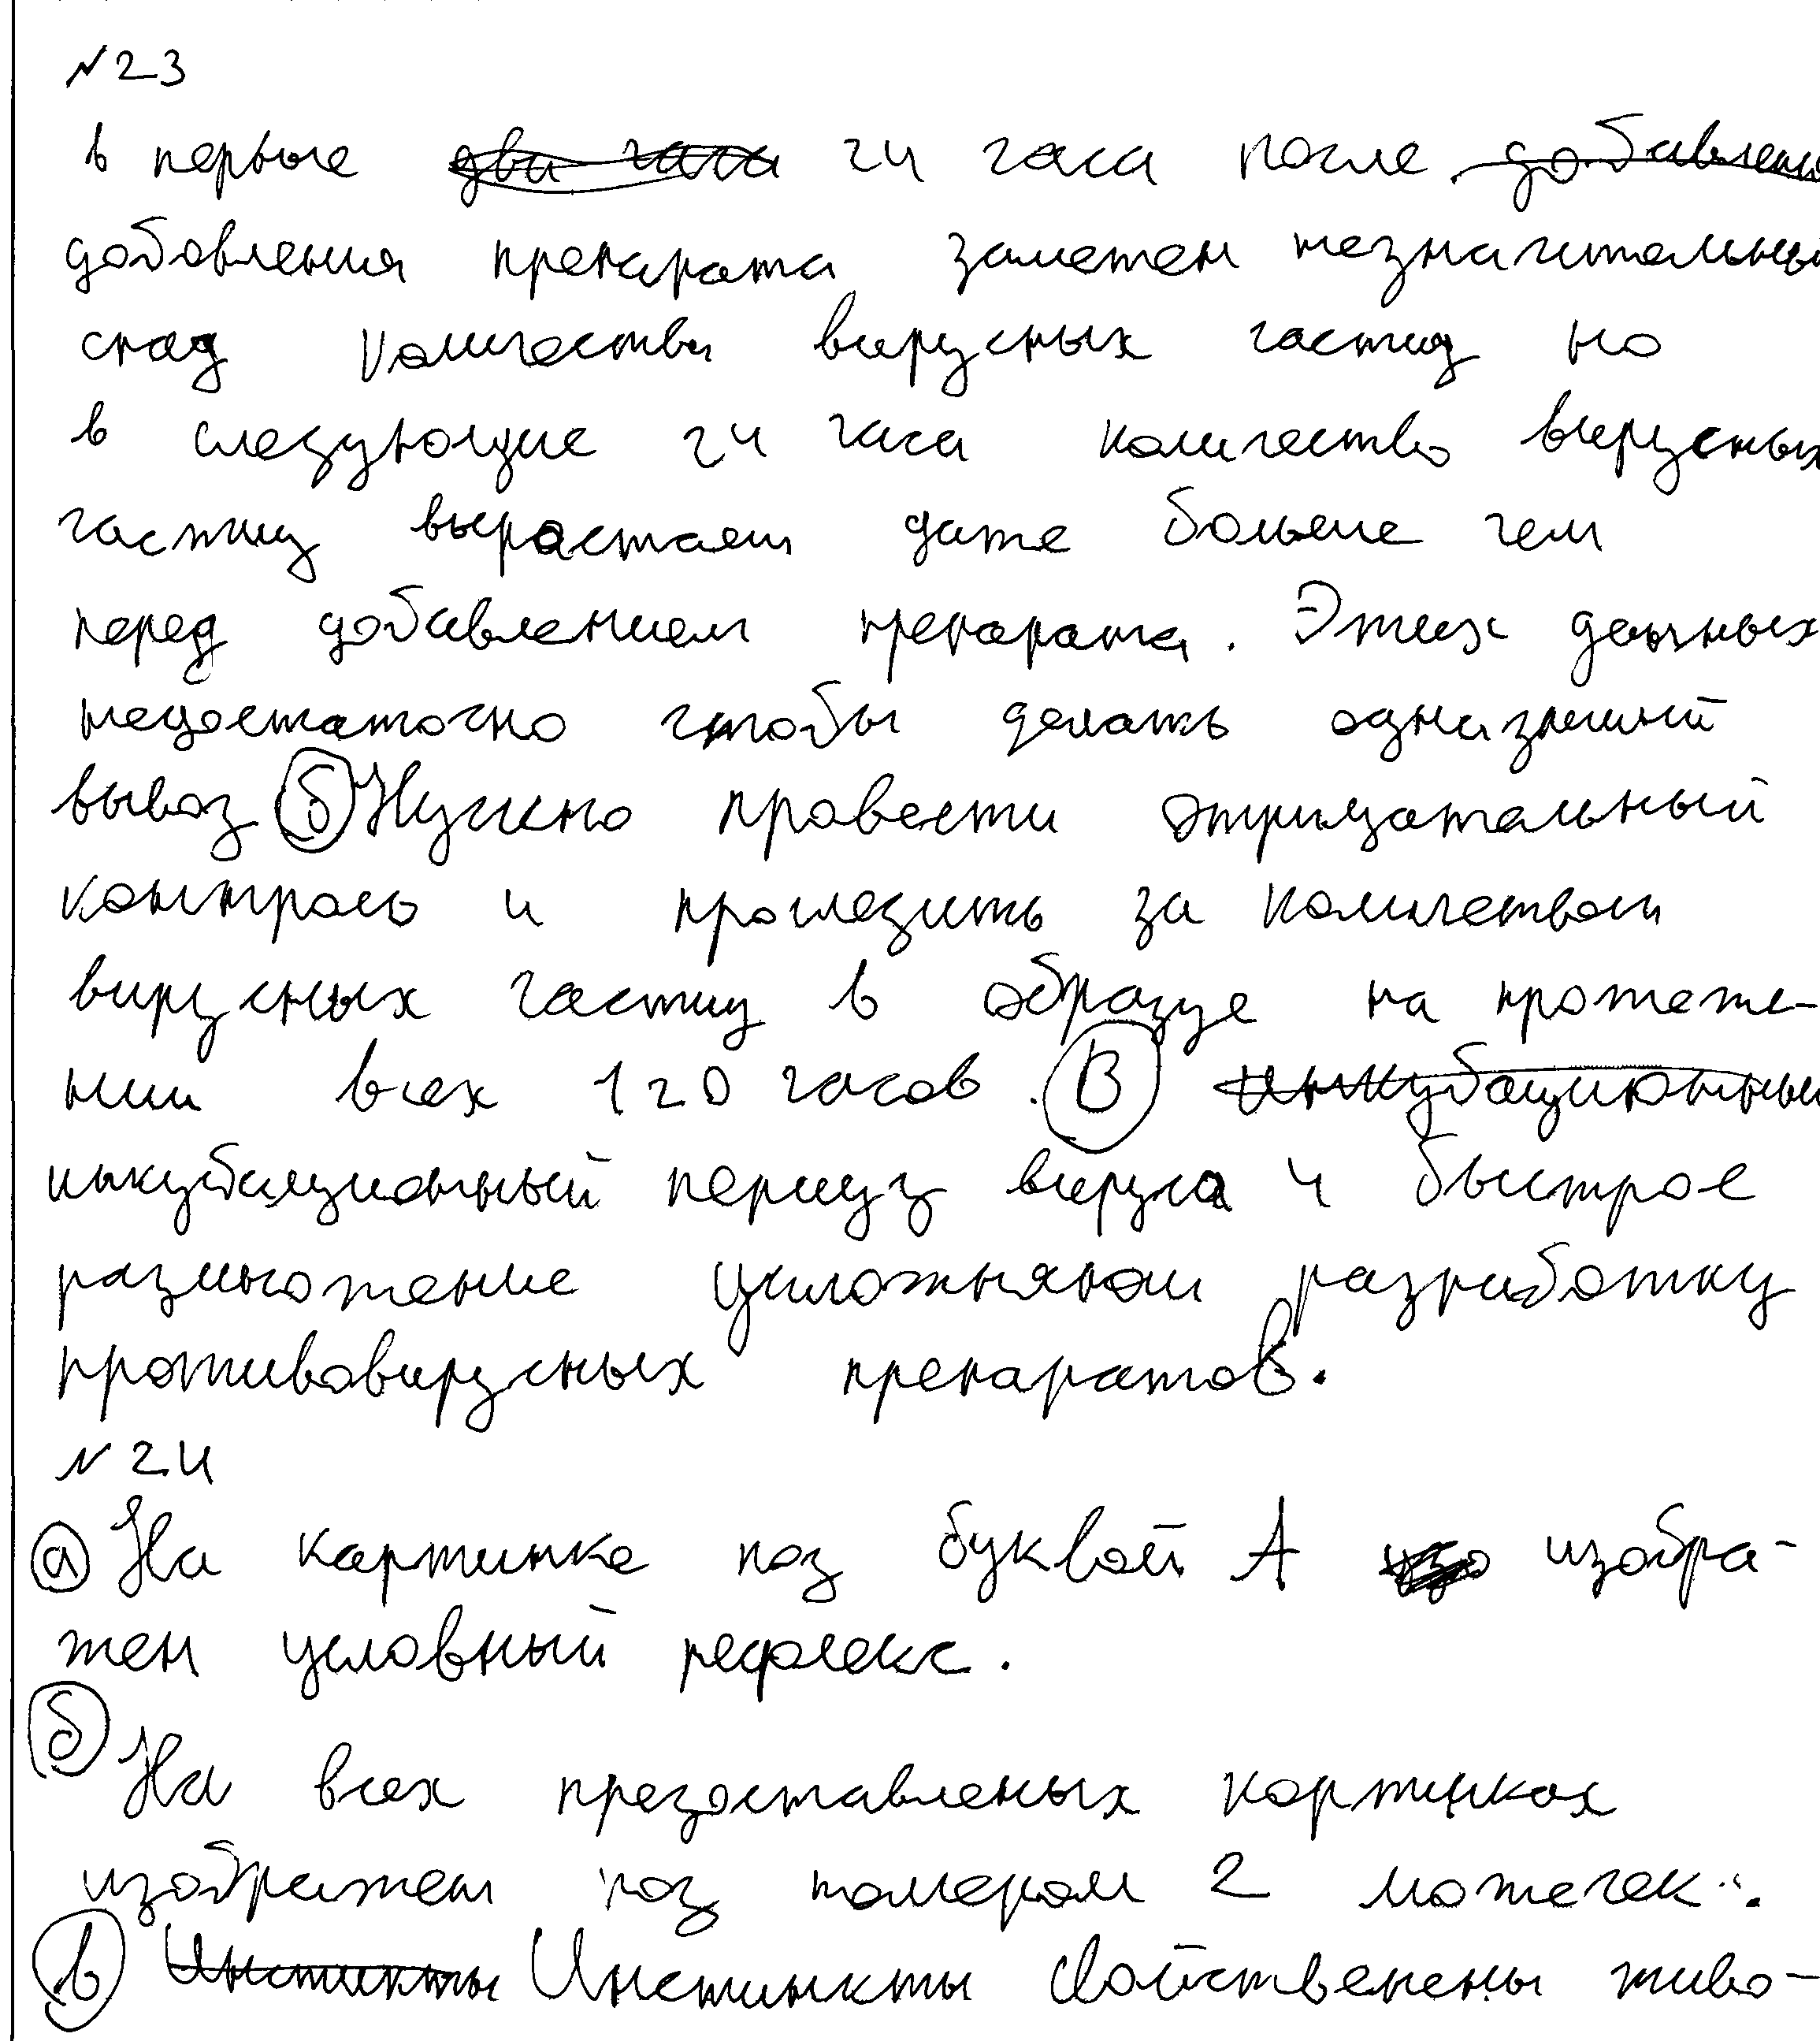 №23
в первые ~~два часа~~ 24 часа после ~~добавлени~~
добовления препарата заметен незначительны
спад количества вирусных частиц но
в следующие 24 часа количество вирусных
частиц вырастает даже больше чем
перед добавлением препарата. Этих данных
недостаточно чтобы делать одназначный
вывод (б) Нужно провести отрицательный
контроль и проследить за количеством
вирусных частиц в образце на протяже-
нии всех 120 часов. (В) ~~инкубационный~~
инкубационный период вируса и быстрое
размножение усложняют разработку
противовирусных препаратов.
№24
(а) На картинке под буквой А изобра-
жен условный рефлекс.
(б)
На всех предоставленых картинках
изображен под номером 2 мозжечек.
(в) ~~Инстинкты~~ Инстинкты свойственены живо-